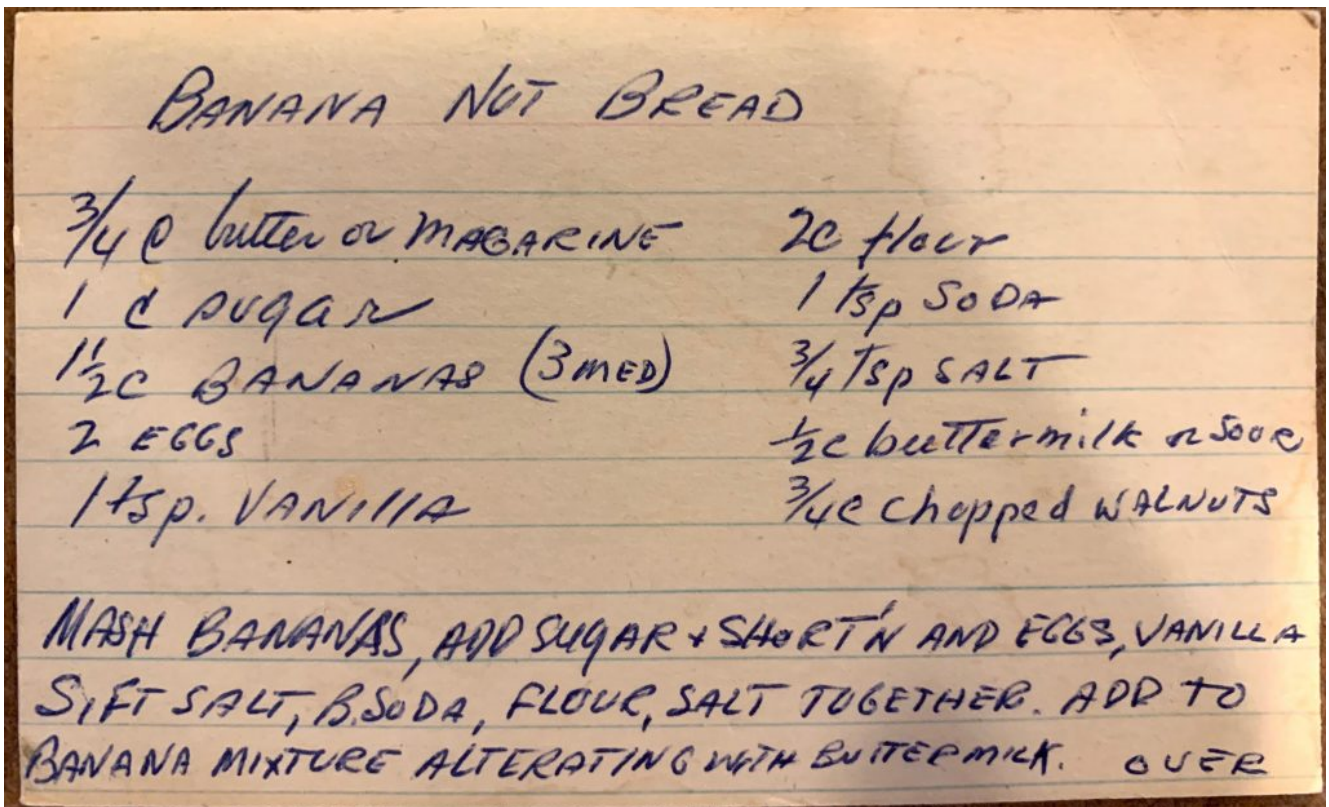 BANANA NUT BREAD
3/4 C butter or MAGARINE
1 C sugar
1 1/2 C BANANAS (3 MED)
2 EGGS
1 tsp. VANILLA
2C flour
1 tsp SODA
3/4 Tsp SALT
1/2 C buttermilk or SOUR
3/4 C chopped WALNUTS
MASH BANANAS, ADD SUGAR + SHORT'N AND EGGS, VANILLA
SIFT SALT, B.SODA, FLOUR, SALT TOGETHER. ADD TO
BANANA MIXTURE ALTERATING WITH BUTTERMILK. OVER